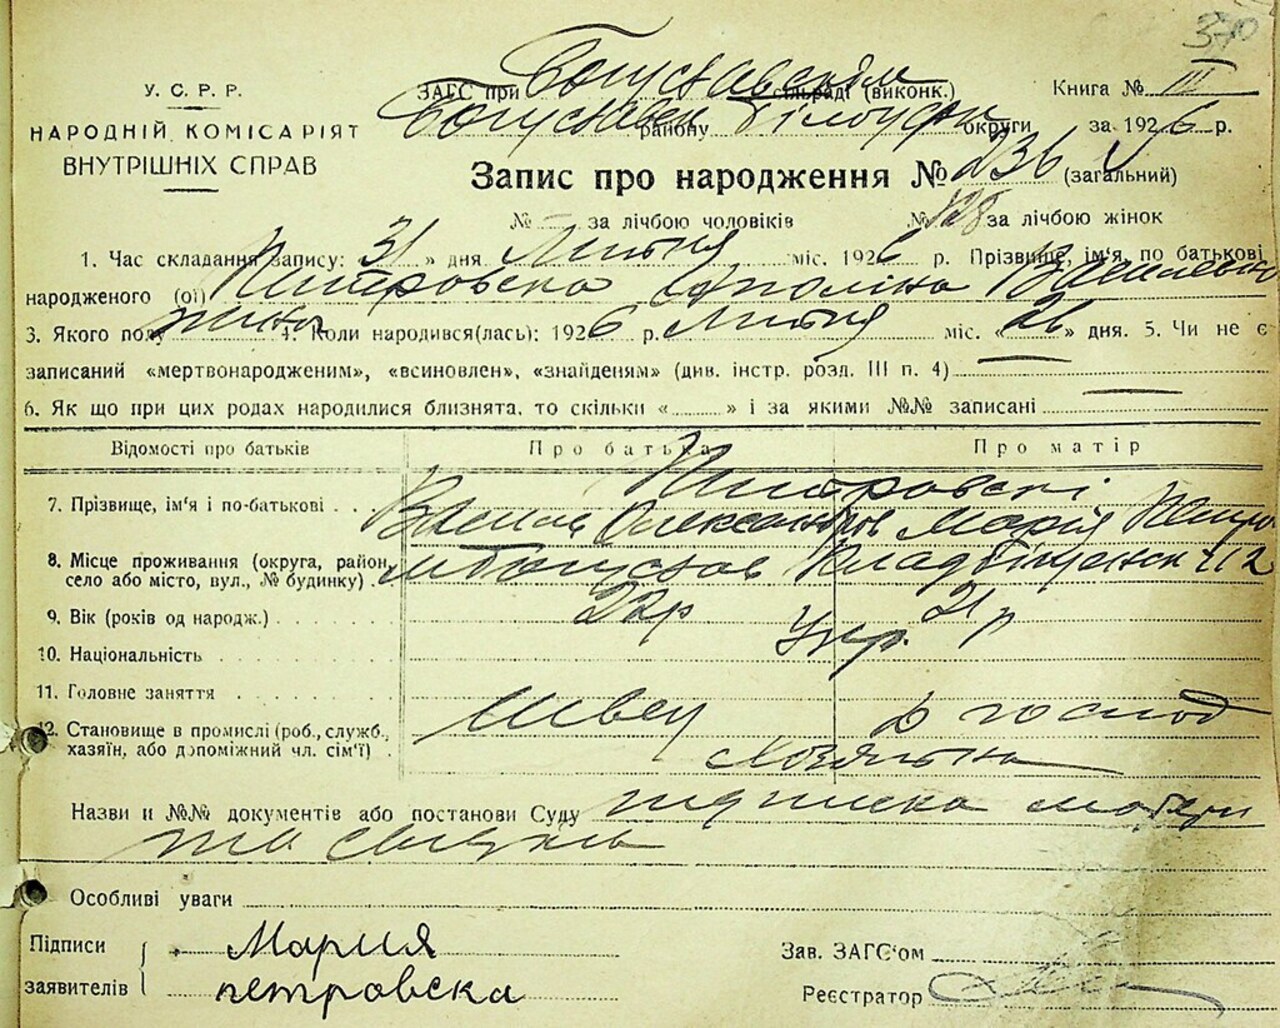 370
У. С. Р. Р.
НАРОДНІЙ КОМІСАРІЯТ
ВНУТРІШНІХ СПРАВ
ЗАГС при Богуславськім сільраді (виконк.)
Богуславськ району Білоцерк округи
Книга № III
за 1926 р.
Запис про народження № 236 (загальний)
№ — за лічбою чоловіків № 128 за лічбою жінок
1. Час складання запису: 31 » дня Липня міс. 1926 р. Прізвище, ім'я, по батькові
народженого (ої) Петровська Аполіна Васильевна
3. Якого полу жіноч 4. Коли народився(лась): 1926 р. Липня міс. «26» дня. 5. Чи не є
записаний «мертвонародженим», «всиновлен», «знайденям» (див. інстр. розд. III п. 4) —
6. Як що при цих родах народилися близнята, то скільки « » і за якими №№ записані —
Відомості про батьків Про батька Про матір
7. Прізвище, ім'я і по-батькові Петровскі
Василь Олександров Марія
8. Місце проживання (округа, район,
село або місто, вул., № будинку) м Богуслав 112
9. Вік (років од народж.) 22р 21р
10. Національність Укр.
11. Головне заняття
12. Становище в промислі (роб., служб.,
хазяїн, або допоміжний чл. сім'ї) Швец д господ
Хозяйка
Назви и №№ документів або постанови Суду підписка матери
та
Особливі уваги
Підписи
заявителів
Мария
петровска
Зав. ЗАГС'ом
Реєстратор